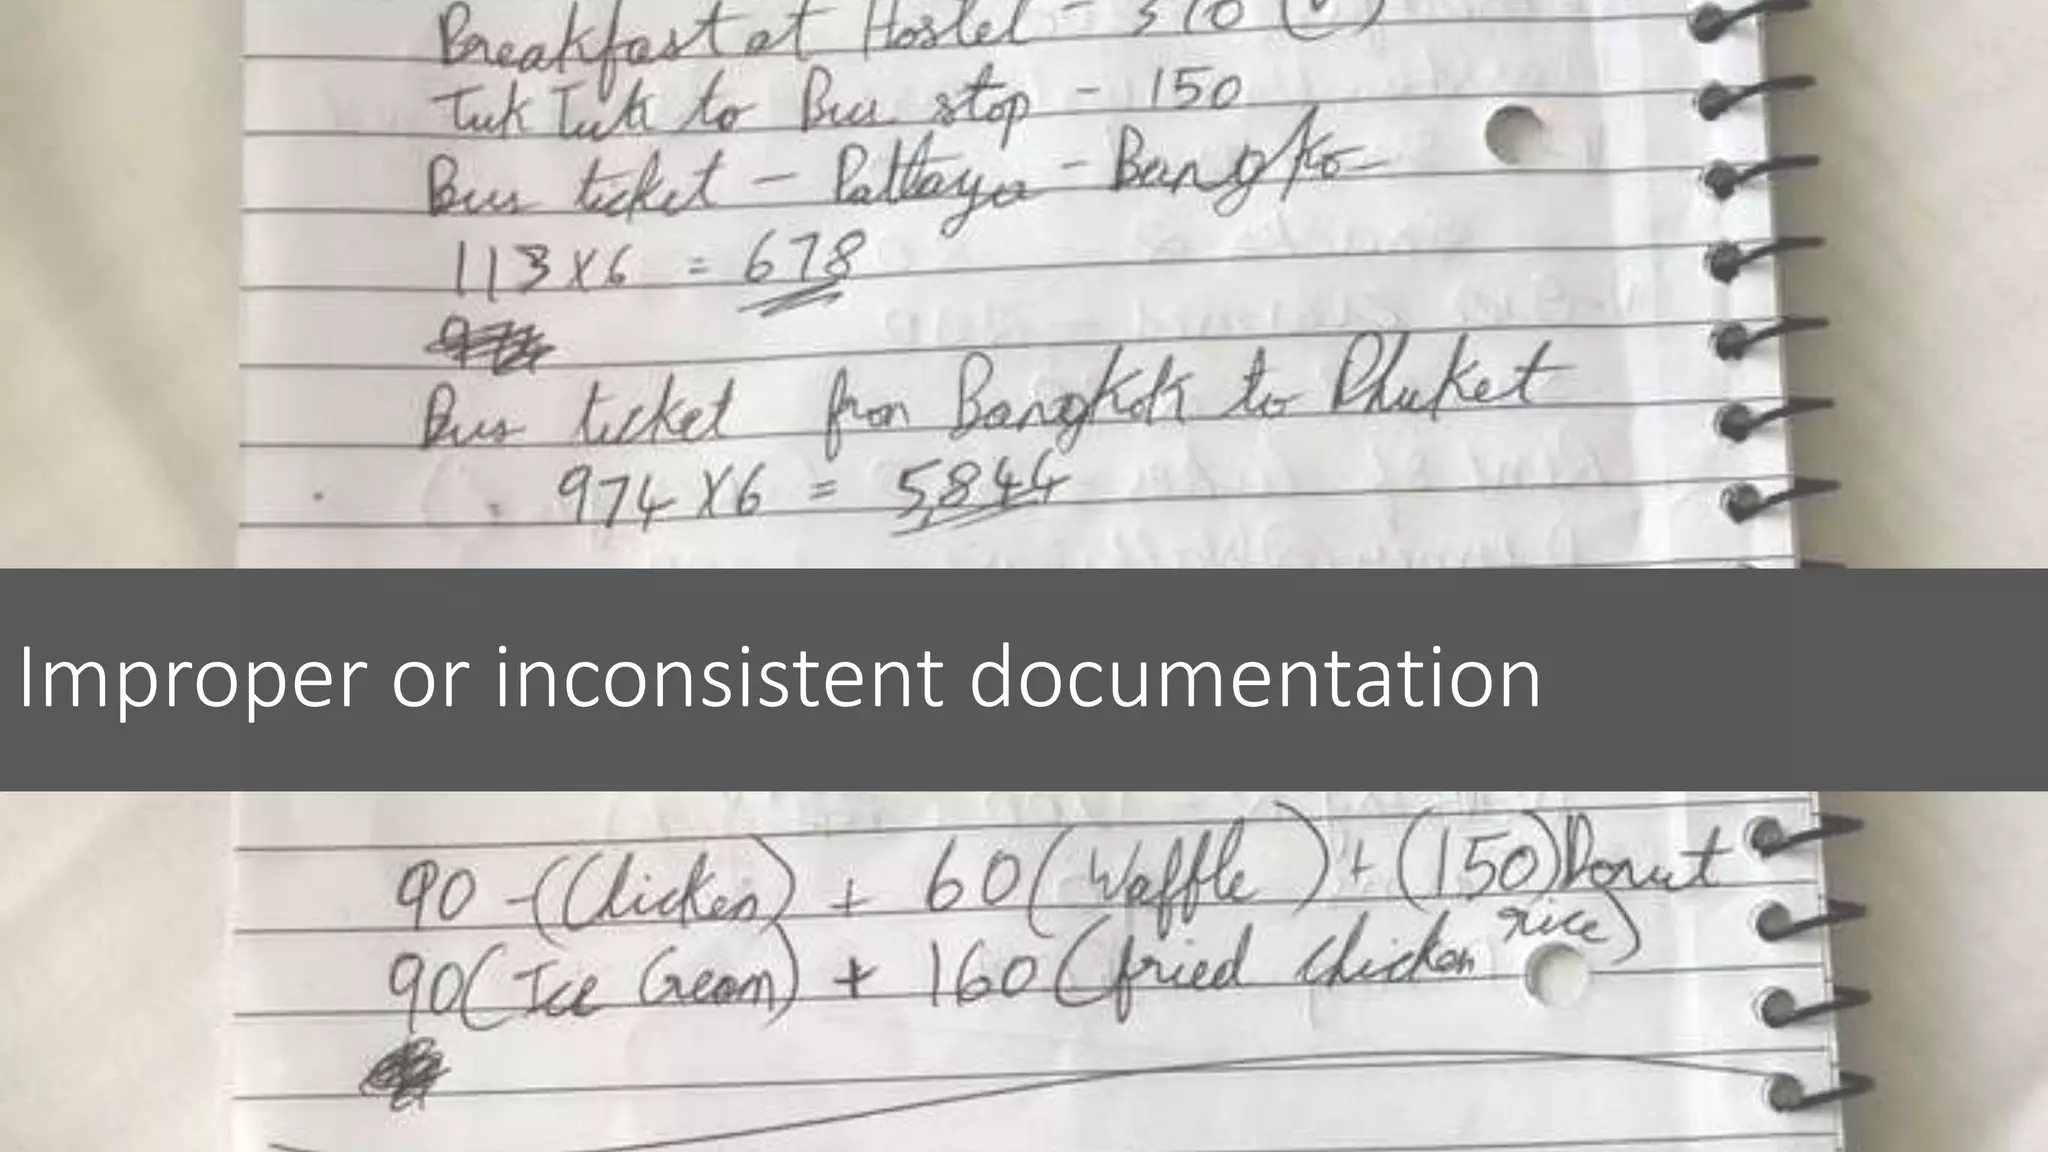 Breakfast at Hostel - 310
Tuk Tuk to Bus stop - 150
Bus ticket - Pattaya - Bangko
113 X 6 = 678
Bus ticket from Bangkok to Phuket
974 X 6 = 5,844
Improper or inconsistent documentation
90 - (Chicken) + 60 (Waffle) + (150) Donut
90 (Ice Cream) + 160 (fried chicken rice)